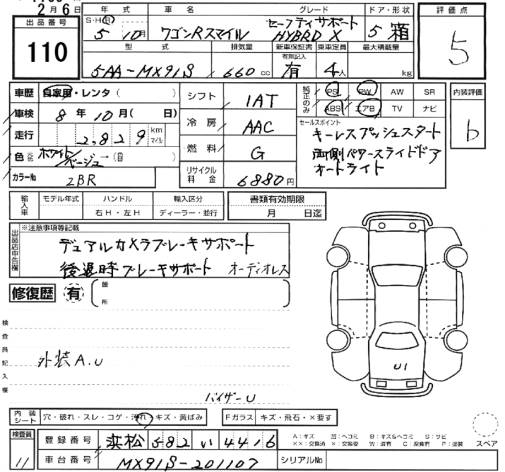 2月6日
出品番号
110
年式
S・H・R
5年10月
車名
ワゴンRスマイル
グレード
セーフティサポート
HYBRID X
ドア・形状
5 箱
評価点
5
型式
5AA-MX91S
排気量
660cc
新車保証書
有効記入
有
乗車定員
4人
最大積載量
kg
車歴
自家用・レンタ(
車検
8年10月(日)
走行
2,829
km
マイル
色
ホワイト/ベージュ→(
カラーNo
2BR
シフト
1AT
冷房
AAC
燃料
G
リサイクル料金
6880円
純正のみ
PS PW AW SR
ABS エアB TV ナビ
セールスポイント
キーレスプッシュスタート
両側パワースライドドア
オートライト
内装評価
b
輸入車
モデル年式
ハンドル
輸入区分
右H・左H
ディーラー・並行
書類有効期限
月 日迄
出品店申告欄
※注意事項等記載
デュアルカメラブレーキサポート
後退時ブレーキサポート オーディオレス
修復歴
有
箇所
検査員記入欄
外装A.U
バイザーU
U1
内装シート
穴・破れ・スレ・コゲ・汚れ・キズ・黄ばみ
Fガラス
キズ・飛石・×要す
スペア
検査員
11
登録番号
浜松582い4416
車台番号
MX91S-201107
シリアルNo